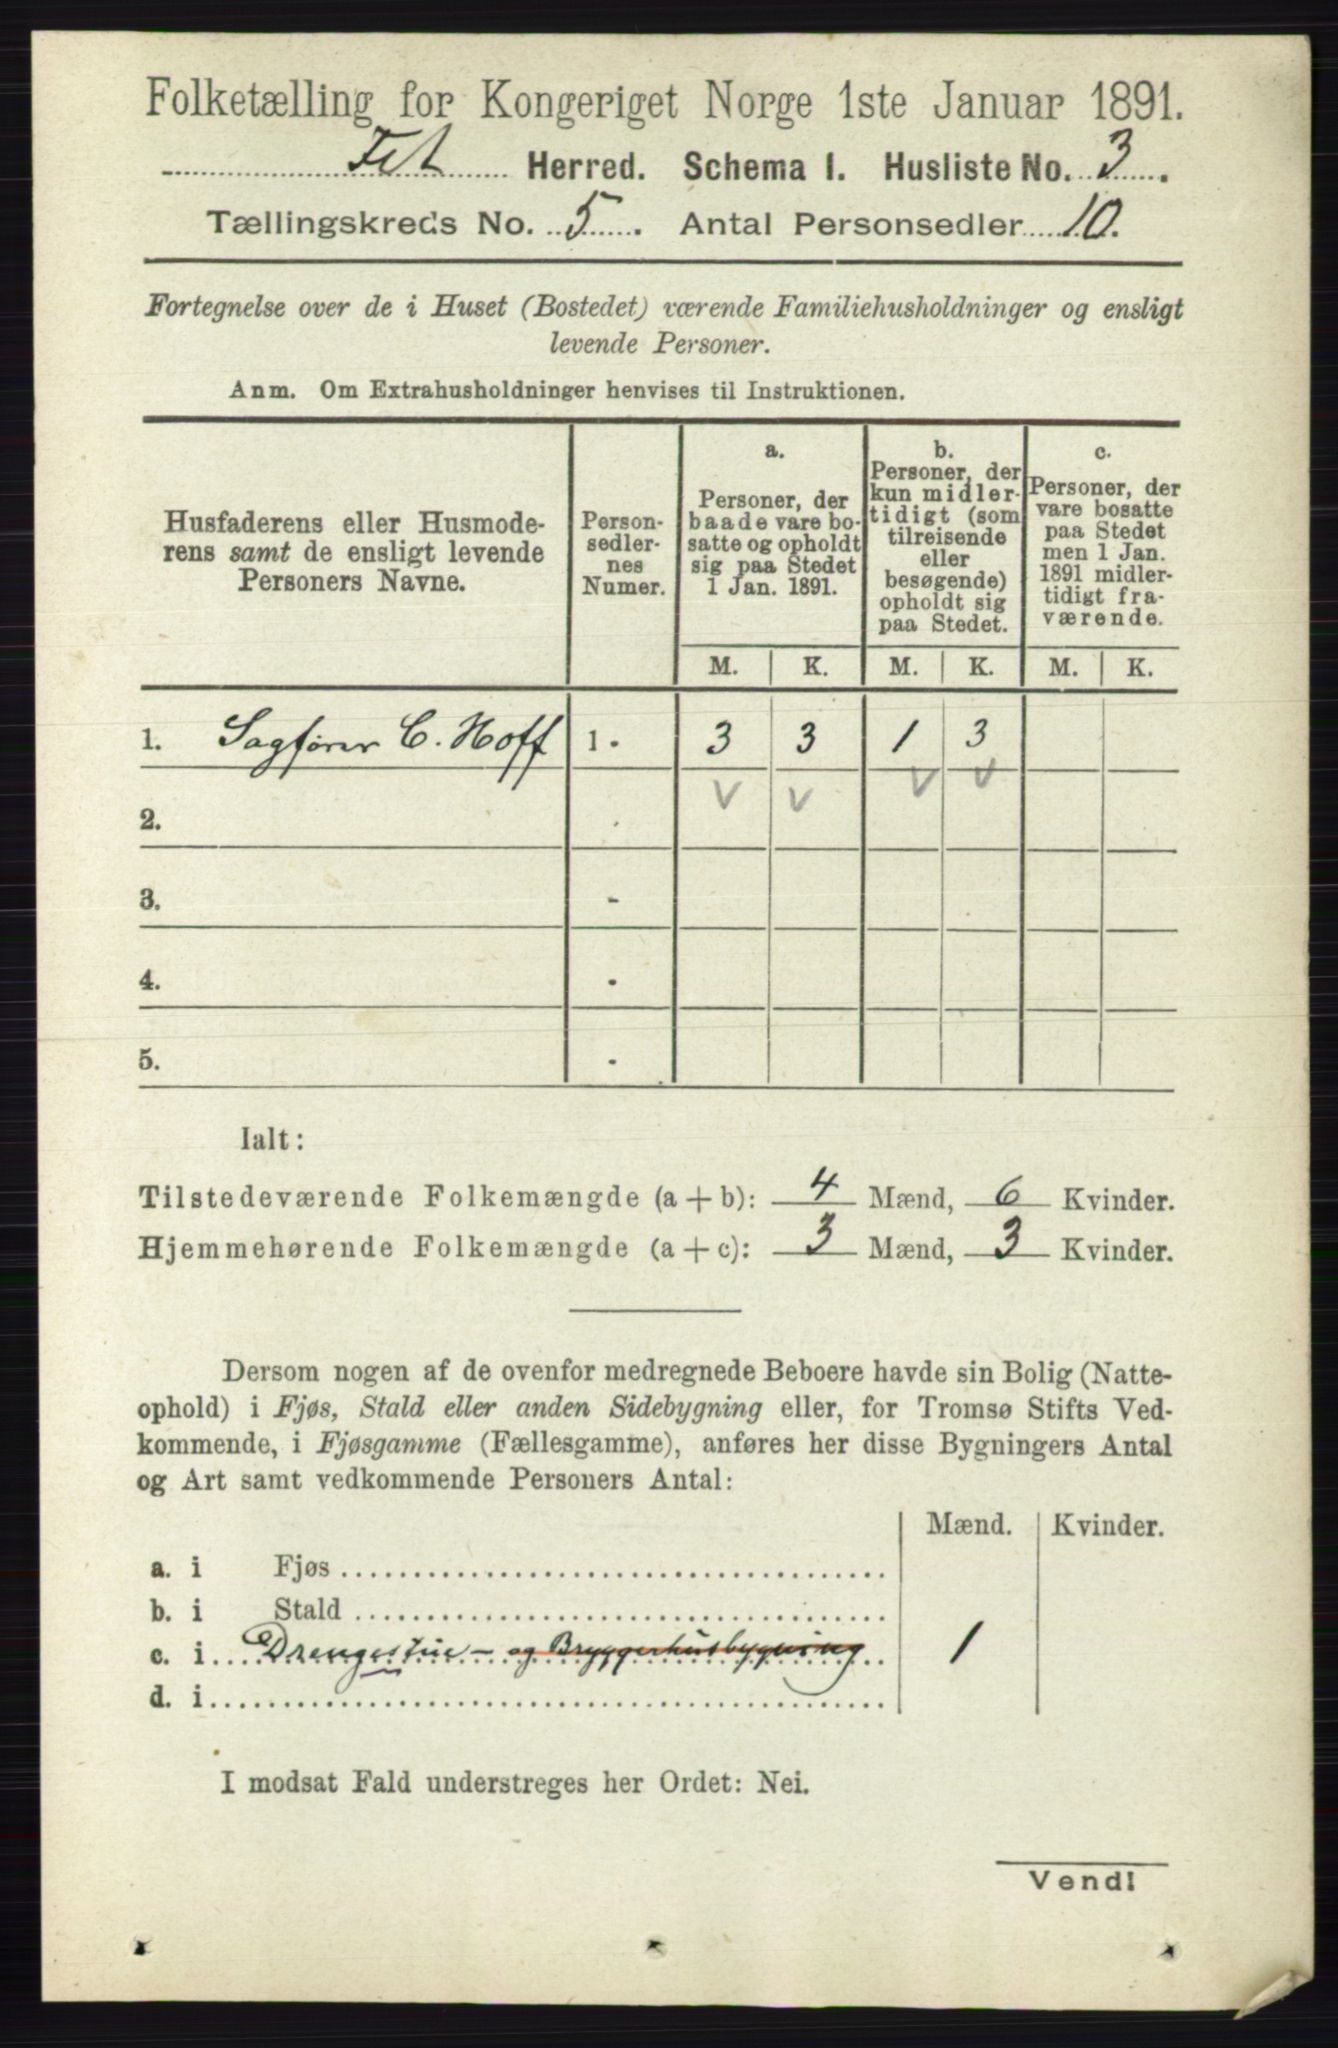 Folketælling for Kongeriget Norge 1ste Januar 1891.
Fet Herred. Schema I. Husliste No. 3.
Tællingskreds No. 5. Antal Personsedler 10.
Fortegnelse over de i Huset (Bostedet) værende Familiehusholdninger og ensligt
levende Personer.
Anm. Om Extrahusholdninger henvises til Instruktionen.
Husfaderens eller Husmode-
rens samt de ensligt levende
Personers Navne.
Person-
sedler-
nes
Numer.
a.
Personer, der
baade vare bo-
satte og opholdt
sig paa Stedet
1 Jan. 1891.
b.
Personer, der
kun midler-
tidigt (som
tilreisende
eller
besøgende)
opholdt sig
paa Stedet.
c.
Personer, der
vare bosatte
paa Stedet
men 1 Jan.
1891 midler-
tidigt fra-
værende.
M. K. M. K. M. K.
1. Sagfører C. Hoff 1 - 3 3 1 3
v v v v
2. -
3. -
4. -
5. -
Ialt:
Tilstedeværende Folkemængde (a + b): 4 Mænd, 6 Kvinder.
Hjemmehørende Folkemængde (a + c): 3 Mænd, 3 Kvinder.
Dersom nogen af de ovenfor medregnede Beboere havde sin Bolig (Natte-
ophold) i Fjøs, Stald eller anden Sidebygning eller, for Tromsø Stifts Ved-
kommende, i Fjøsgamme (Fællesgamme), anføres her disse Bygningers Antal
og Art samt vedkommende Personers Antal:
Mænd. Kvinder.
a. i Fjøs
b. i Stald
c. i Drengestue- og Bryggerhusbygning 1
d. i
I modsat Fald understreges her Ordet: Nei.
Vend!